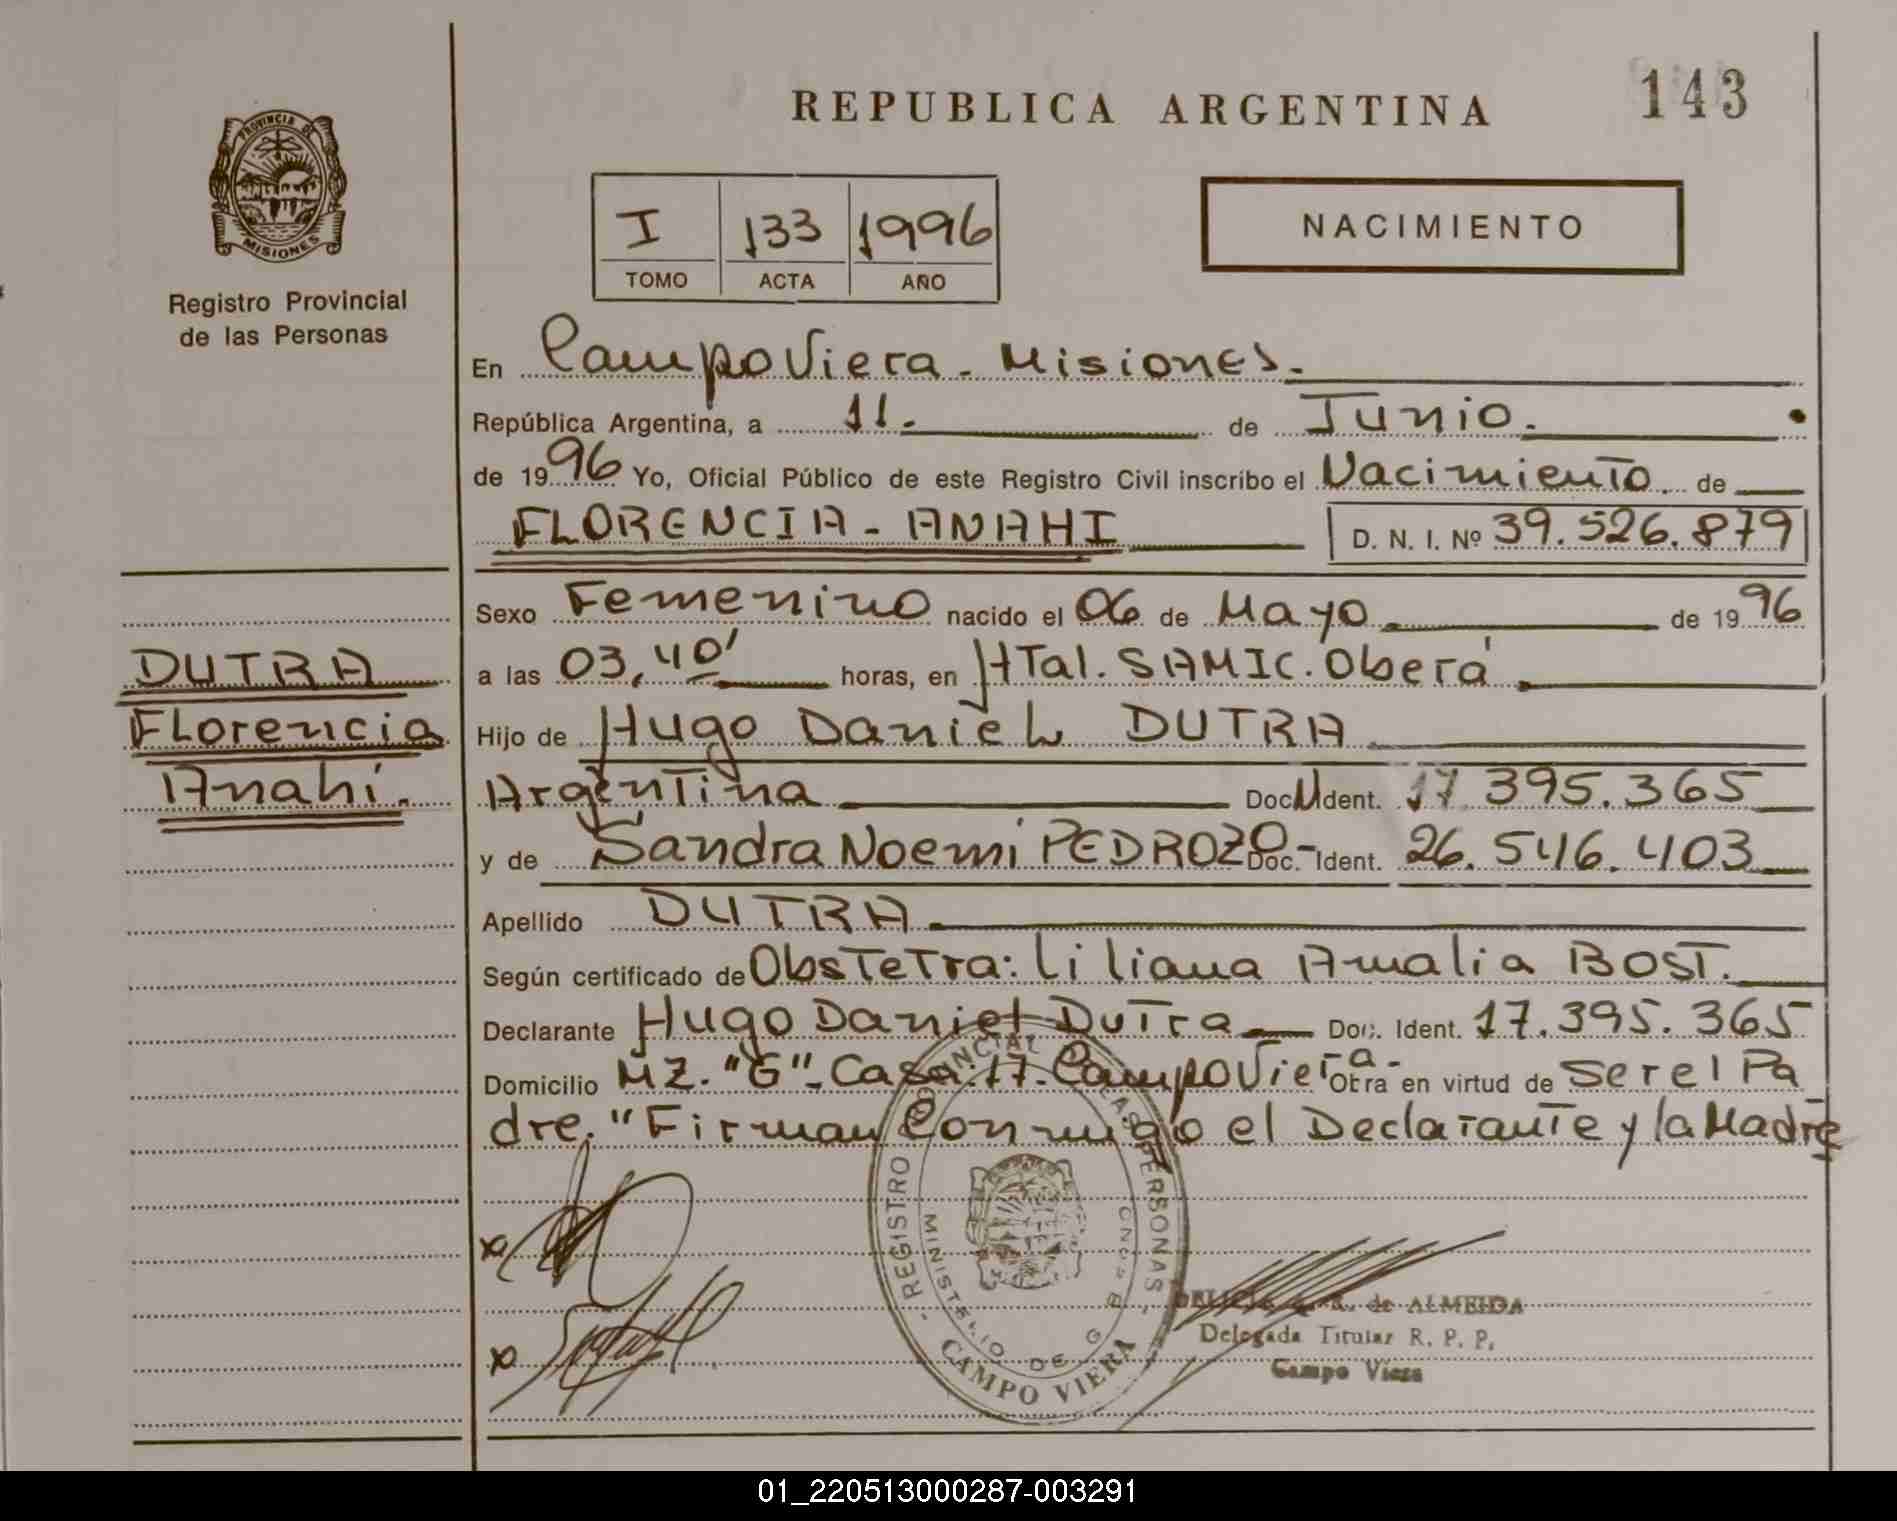 143
REPUBLICA ARGENTINA
PROVINCIA DE
MISIONES
Registro Provincial
de las Personas
I 133 1996
TOMO ACTA AÑO
NACIMIENTO
En Campo Viera - Misiones.
República Argentina, a 11. de Junio.
de 1996 Yo, Oficial Público de este Registro Civil inscribo el Nacimiento. de
FLORENCIA - ANAHI D. N. I. Nº 39.526.879
Sexo Femenino nacido el 06 de Mayo de 1996
a las 03,40' horas, en HTal. SAMIC. Oberá
Hijo de Hugo Daniel DUTRA
Argentina Doc. Ident. 17.395.365
y de Sandra Noemi PEDROZO- Doc. Ident. 26.546.403
Apellido DUTRA
Según certificado de Obstetra: Liliana Amalia BOST.
Declarante Hugo Daniel Dutra Doc. Ident. 17.395.365
Domicilio MZ. "G" - Casa: 17. Campo Viera- Obra en virtud de ser el Pa
dre. "Firman Conmigo el Declarante y la Madre
DUTRA
Florencia
Anahí.
x
x
REGISTRO PROVINCIAL DE LAS PERSONAS -
MINISTERIO DE G
CAMPO VIERA
de ALMEIDA
Delegada Titular R. P. P.
Campo Viera
01_220513000287-003291